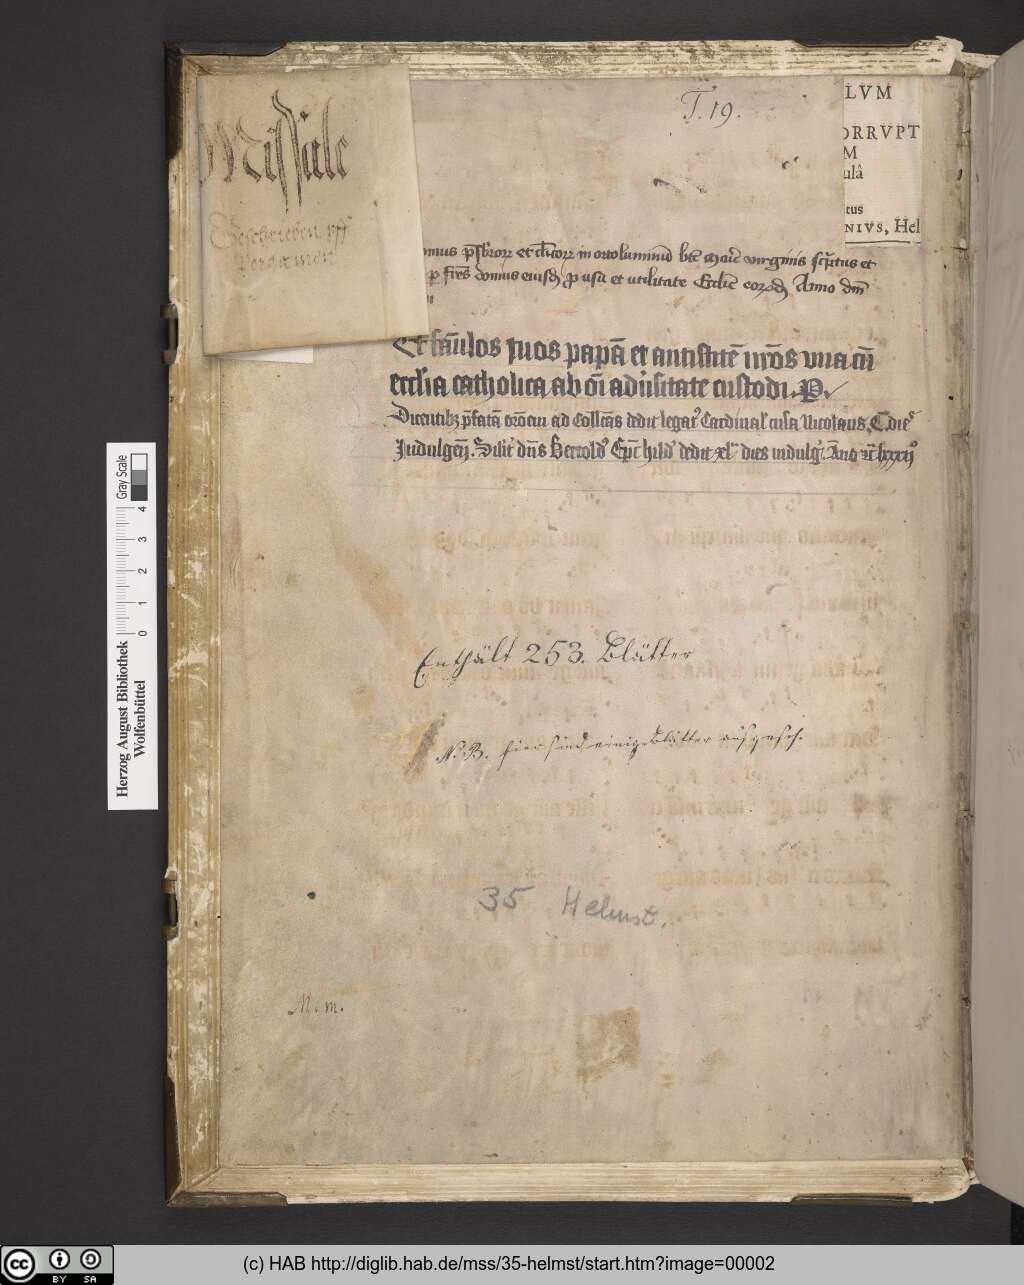 Missale
Geschrieben vff
Pergamen
T. 19.
LVM
ORRVPT
M
ulâ
tus
NIVS, Hel
omus p̄sbror̄ et cl̄icor̄ in orto luminū bt̄e Marie virginis sc̄ptus et
p̱ fr̄es domus eiusd̄ ꝓ usu et utilitate Eccl̄ie eorūd̄ Anno dn̄i
Et fāulos tuos papā et antistitē nr̄os vna cū
eccl̄ia catholica ab oī aduersitate custodi. P.
Dicentibꝫ p̄fatā orōem ad Collc̄as dedit legat⁹ Cardinal' cusa Nicolaus C. die⁹
Indulgen̄. Silit' dn̄s Bertold⁹ Ep̄c hild' dedit xl dies indulg' An̄o
Enthält 253. Blätter
N. B. hier sind einige Blätter ausgesch.
35 Helmst.
M. m.
Herzog August Bibliothek
Wolfenbüttel
0 1 2 3 4
Gray Scale
cc BY SA
(c) HAB http://diglib.hab.de/mss/35-helmst/start.htm?image=00002